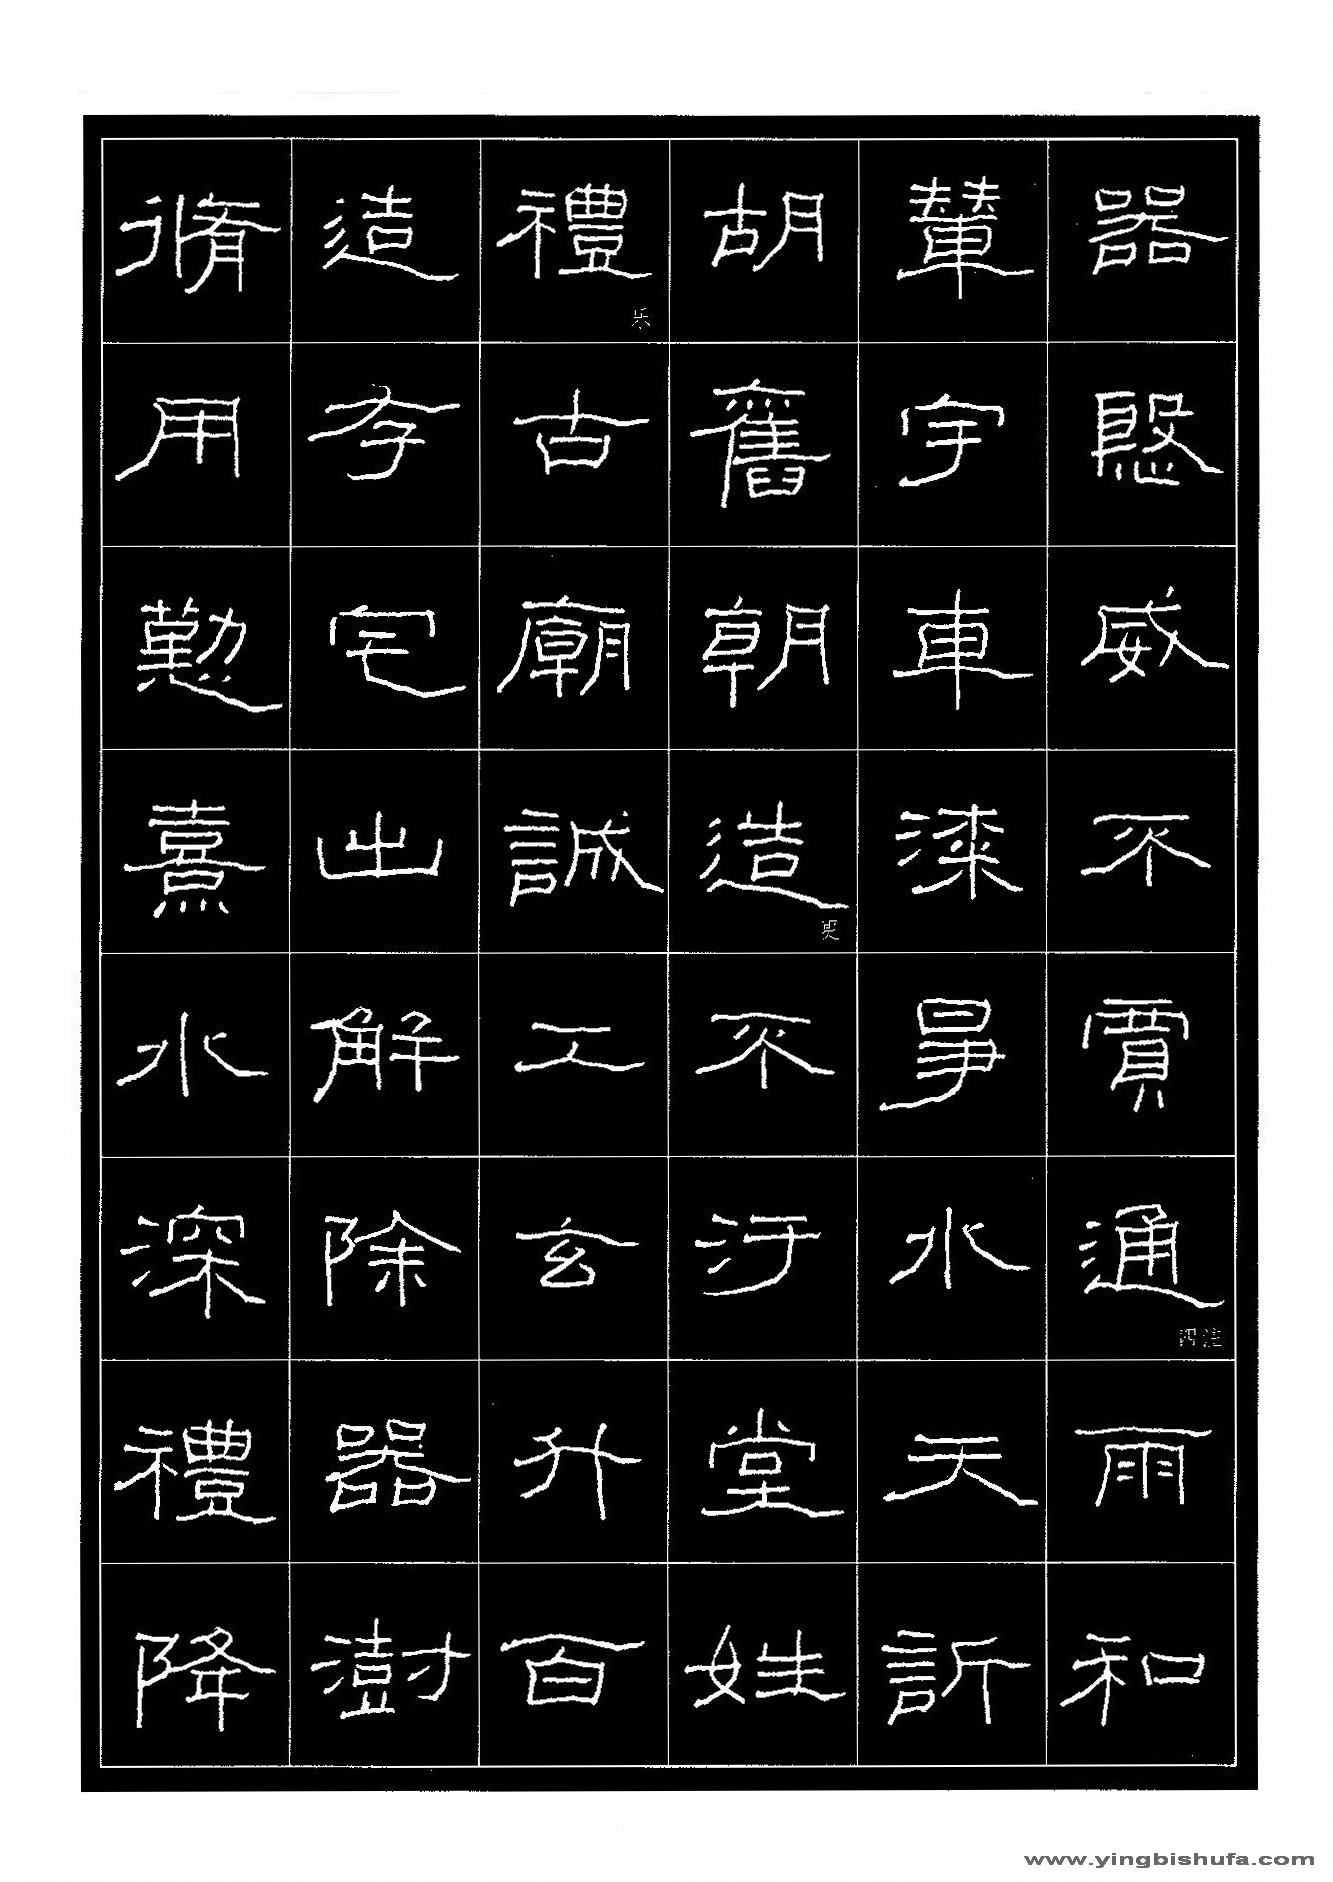 脩造禮乐胡輦器
用存古舊宇慇
懃宅廟朝車威
熹出誠造更漆不
水解工不爭賈
深除玄汙水通四注
禮器升堂天雨
降澍百姓訢和
www.yingbishufa.com